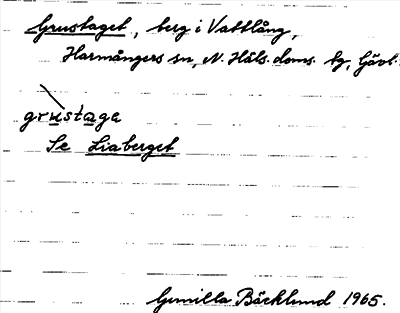 Grustaget, berg i Vattlång,
Harmångers sn, N. Häls. doms. tg, Gävl.
grustaga
Se Liaberget
Gunilla Bäcklund 1965.